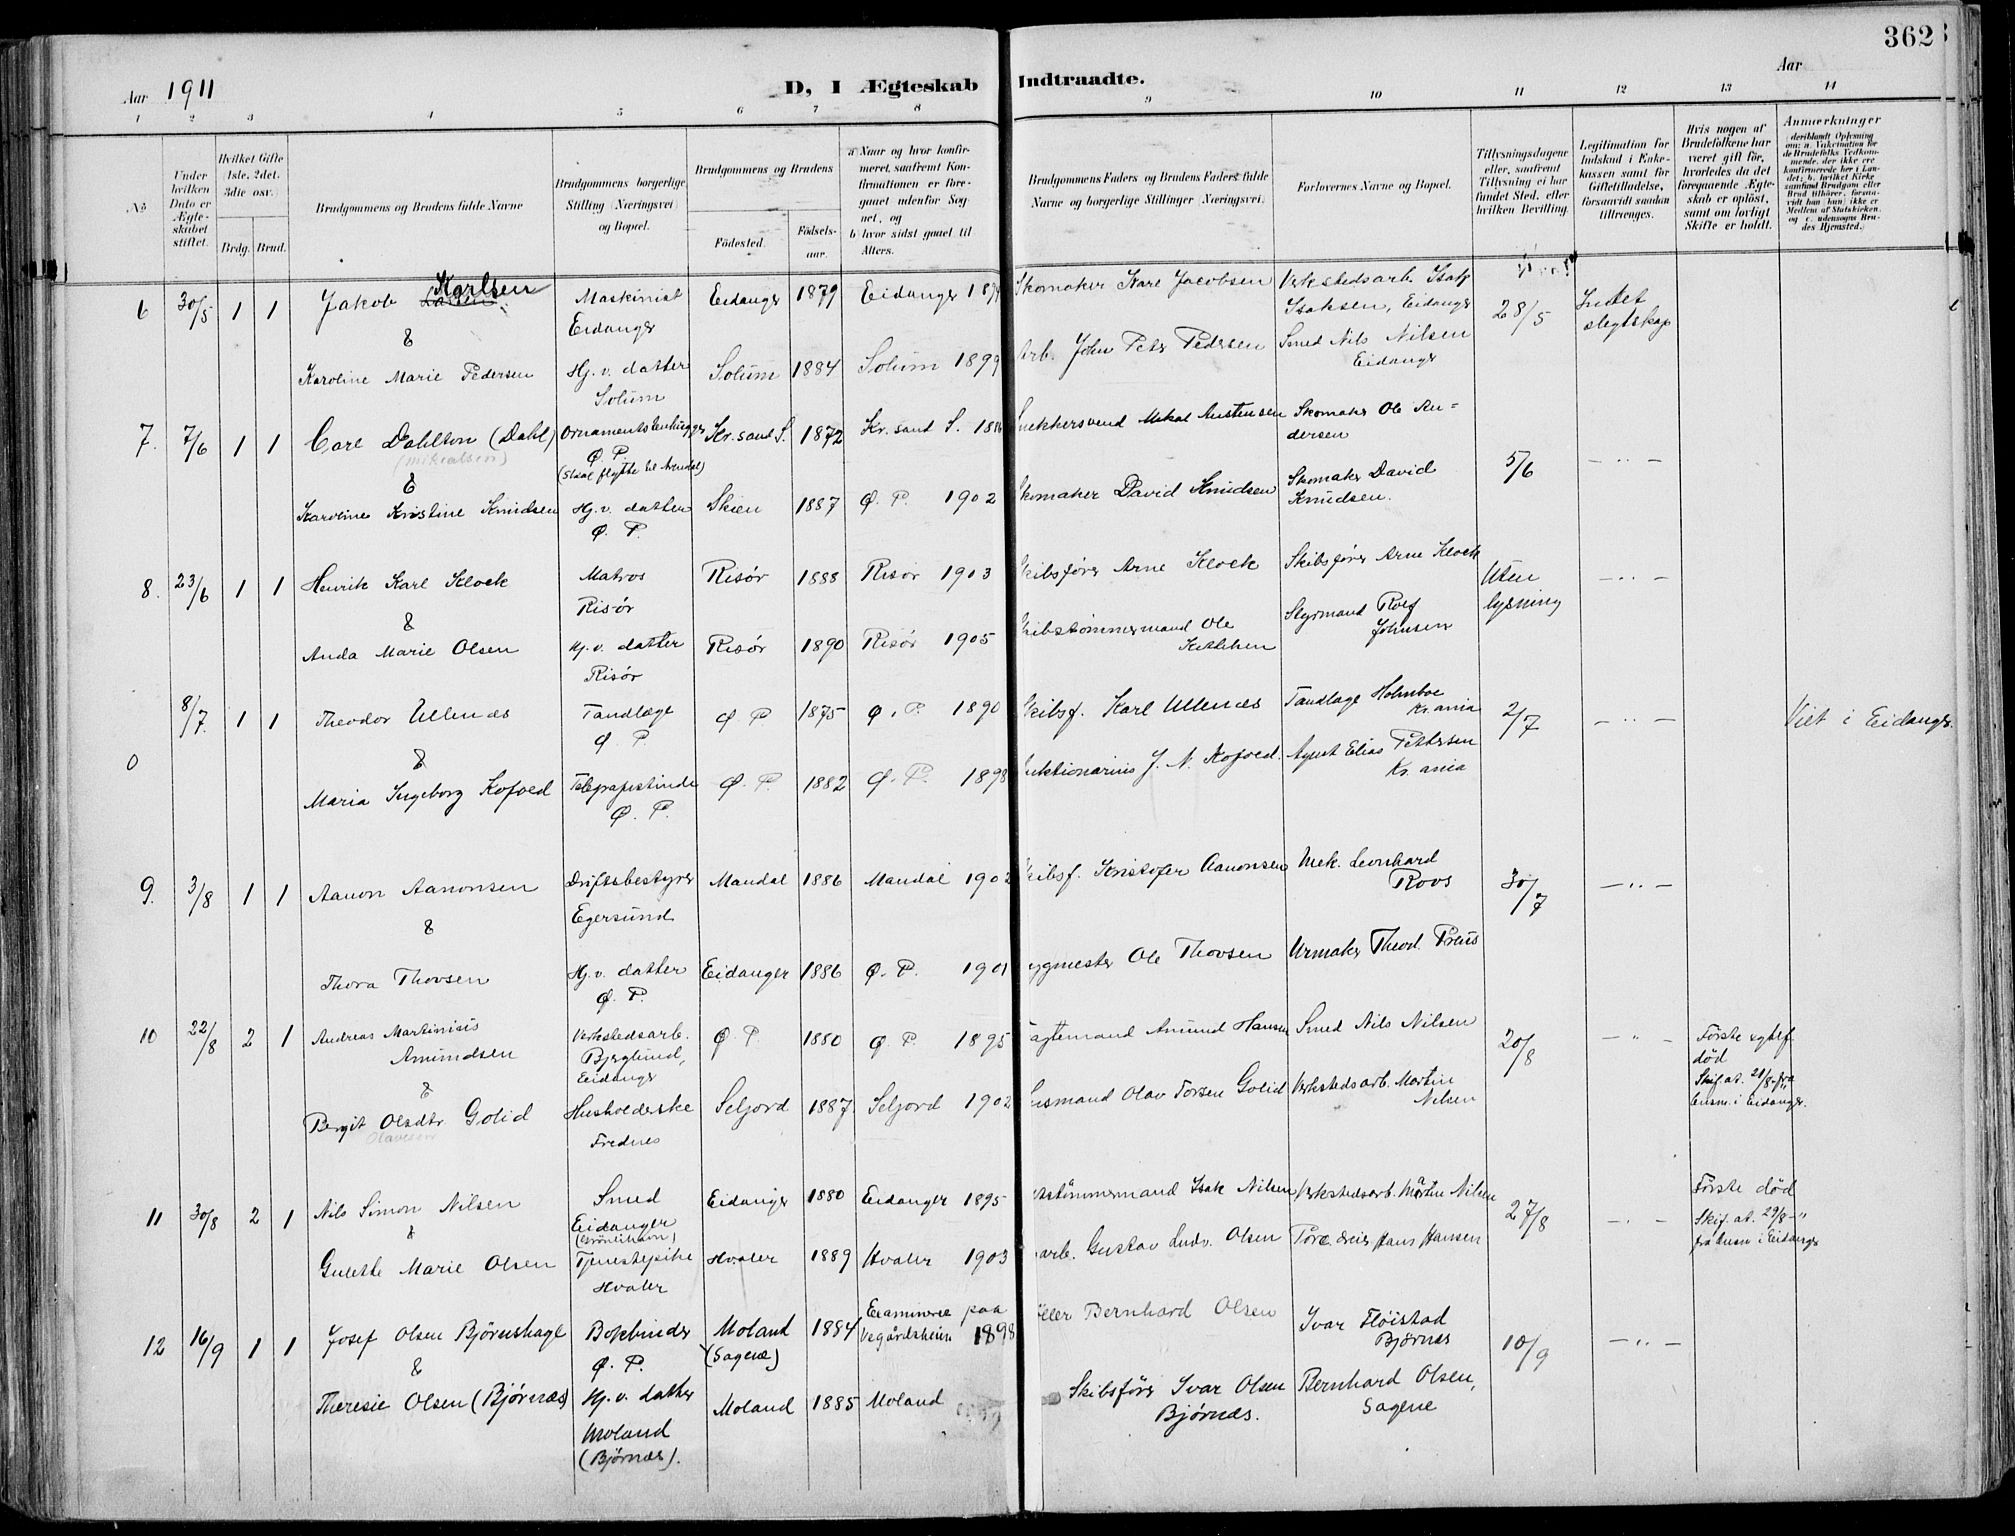 362
Aar 1911
D, I Ægteskab Indtraadte.
Aar
1 2 3 4 5 6 7 8 9 10 11 12 13 14
No
Under hvilken Dato er Ægteskabet stiftet.
Hvilket Gifte (1ste, 2det, 3die osv.)
Brdg. Brud.
Brudgommens og Brudens fulde Navne
Brudgommens borgerlige Stilling (Næringsvei) og Bopæl.
Brudgommens og Brudens
Födested.
Födselsaar.
a Naar og hvor konfirmeret, saafremt Konfirmationen er foregaaet udenfor Sognet, og
b hvor sidst gaaet til Alters.
Brudgommens Faders og Brudens Faders fulde Navne og borgerlige Stillinger (Næringsvei)
Forlovernes Navne og Bopæl.
Tillysningsdagene eller, saafremt Tillysning ei har fundet Sted, efter hvilken Bevilling.
Legitimation for Indskud i Enkekassen samt for Giftetilladelse, forsaavidt saadan tiltrænges.
Hvis nogen af Brudefolkene har været gift för, hvorledes da det foregaaende Ægteskab er oplöst, samt om lovligt Skifte er holdt.
Anmærkninger
6 30/5 1 1 Jakob Karlsen Maskinist Eidanger Eidanger 1879 Eidanger Skomaker Karl Jacobsen Verkstedsarb. Isak Isaksen, Eidanger 28/5 Intet slegtskap
&
Karoline Marie Pedersen Hj. v. datter Solum Solum 1884 Solum 1899 Arb. John Peter Pedersen Smed Nils Nilsen Eidanger
7. 7/6 1 1 Carl Dahlton (Dahl) Ø. P. (Skal flytte til Arendal) Kr.sand S. 1872 Kr.sand S. Skomaker Ole Andersen 5/6 — " —
&
Karoline Kristine Knudsen Hj. v. datter Ø. P. Skien 1887 Ø. P. 1902 Skomaker David Knudsen Skomaker David Knudsen.
8. 23/6 1 1 Henrik Karl Klock Matros Risør Risør 1888 Risør 1903 Skibsfører Arne Klock Skibsfører Arne Klock Uten lysning — " —
&
Anda Marie Olsen Hj. v. datter Risør Risør 1890 Risør 1905 Skibstømmermand Ole Styrmand Rolf Johnsen
8/7. 1 1 Theodor Ullenæs Tandlæge Ø. P. Ø P 1875 Ø. P. 1890 Skibsf. Karl Ullenæs Tandlæge Holmboe Kr.ania 2/7 — " — Viet i Eidanger.
0 &
Maria Ingeborg Kofoed Telegrafistinde Ø. P. Ø. P. 1882 Ø. P. 1898 Auktionarius J. N. Kofoed. Agent Elias Pettersen Kr. ania
9. 3/8 1 1 Aanon Aanonsen Driftsbestyrer Egersund Mandal 1886 Mandal 1902 Skibsf. Kristofer Aanonsen Mek. Leonhard Roos 30/7 — " —
&
Thora Thovsen Hj. v. datter Ø. P. Eidanger 1886 Ø. P. 1901 Bygmester Ole Thovsen Urmaker Theod. Preus
10 22/8 2 1 Andreas Martinius Amundsen Verkstedsarb. Bjerglund, Eidanger Ø. P. 1880 Ø. P. 1895 Amund Hansen Smed Nils Nilsen 20/8 — " — Første egtef. død Skif.at. 21/8 fra lensm. i Eidanger.
&
Bergit Olsdtr Golid Husholderske Frednes Seljord 1887 Seljord 1902 Husmand Olav Torsen Golid Verkstedsarb. Martin Nilsen
11 30/8 2 1 Nils Simon Nilsen Smed Eidanger Eidanger 1880 Eidanger 1895 Isak Nilsen Verkstedsarb. Martin Nilsen 27/8 — " — Første død Skif.at. 29/8 fra lensm i Eidanger
&
Gulette Marie Olsen Tjenestepike Hvaler Hvaler 1889 Hvaler 1903 arb. Gustav Ludv. Olsen Hans Hansen
12 16/9 1 1 Josef Olsen Bjørnshage Bokbinder Ø. P. Moland (Sagene) 1884 Examineret paa Vegårdsheien 1898 Bernhard Olsen Ivar Fløistad Bjørnæs 10/9 — " —
&
Theresie Olsen (Bjørnæs) Hj. v. datter Moland (Bjørnæs). Moland 1885 Moland Skibsfører Ivar Olsen Bjørnæs. Bernhard Olsen, Sagene